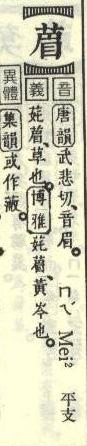 葿
音 唐韻武悲切,音眉。ㄇㄟˊ Mei² 平支
義 葿,草也。博雅 葿黃岑也。
異體 集韻或作